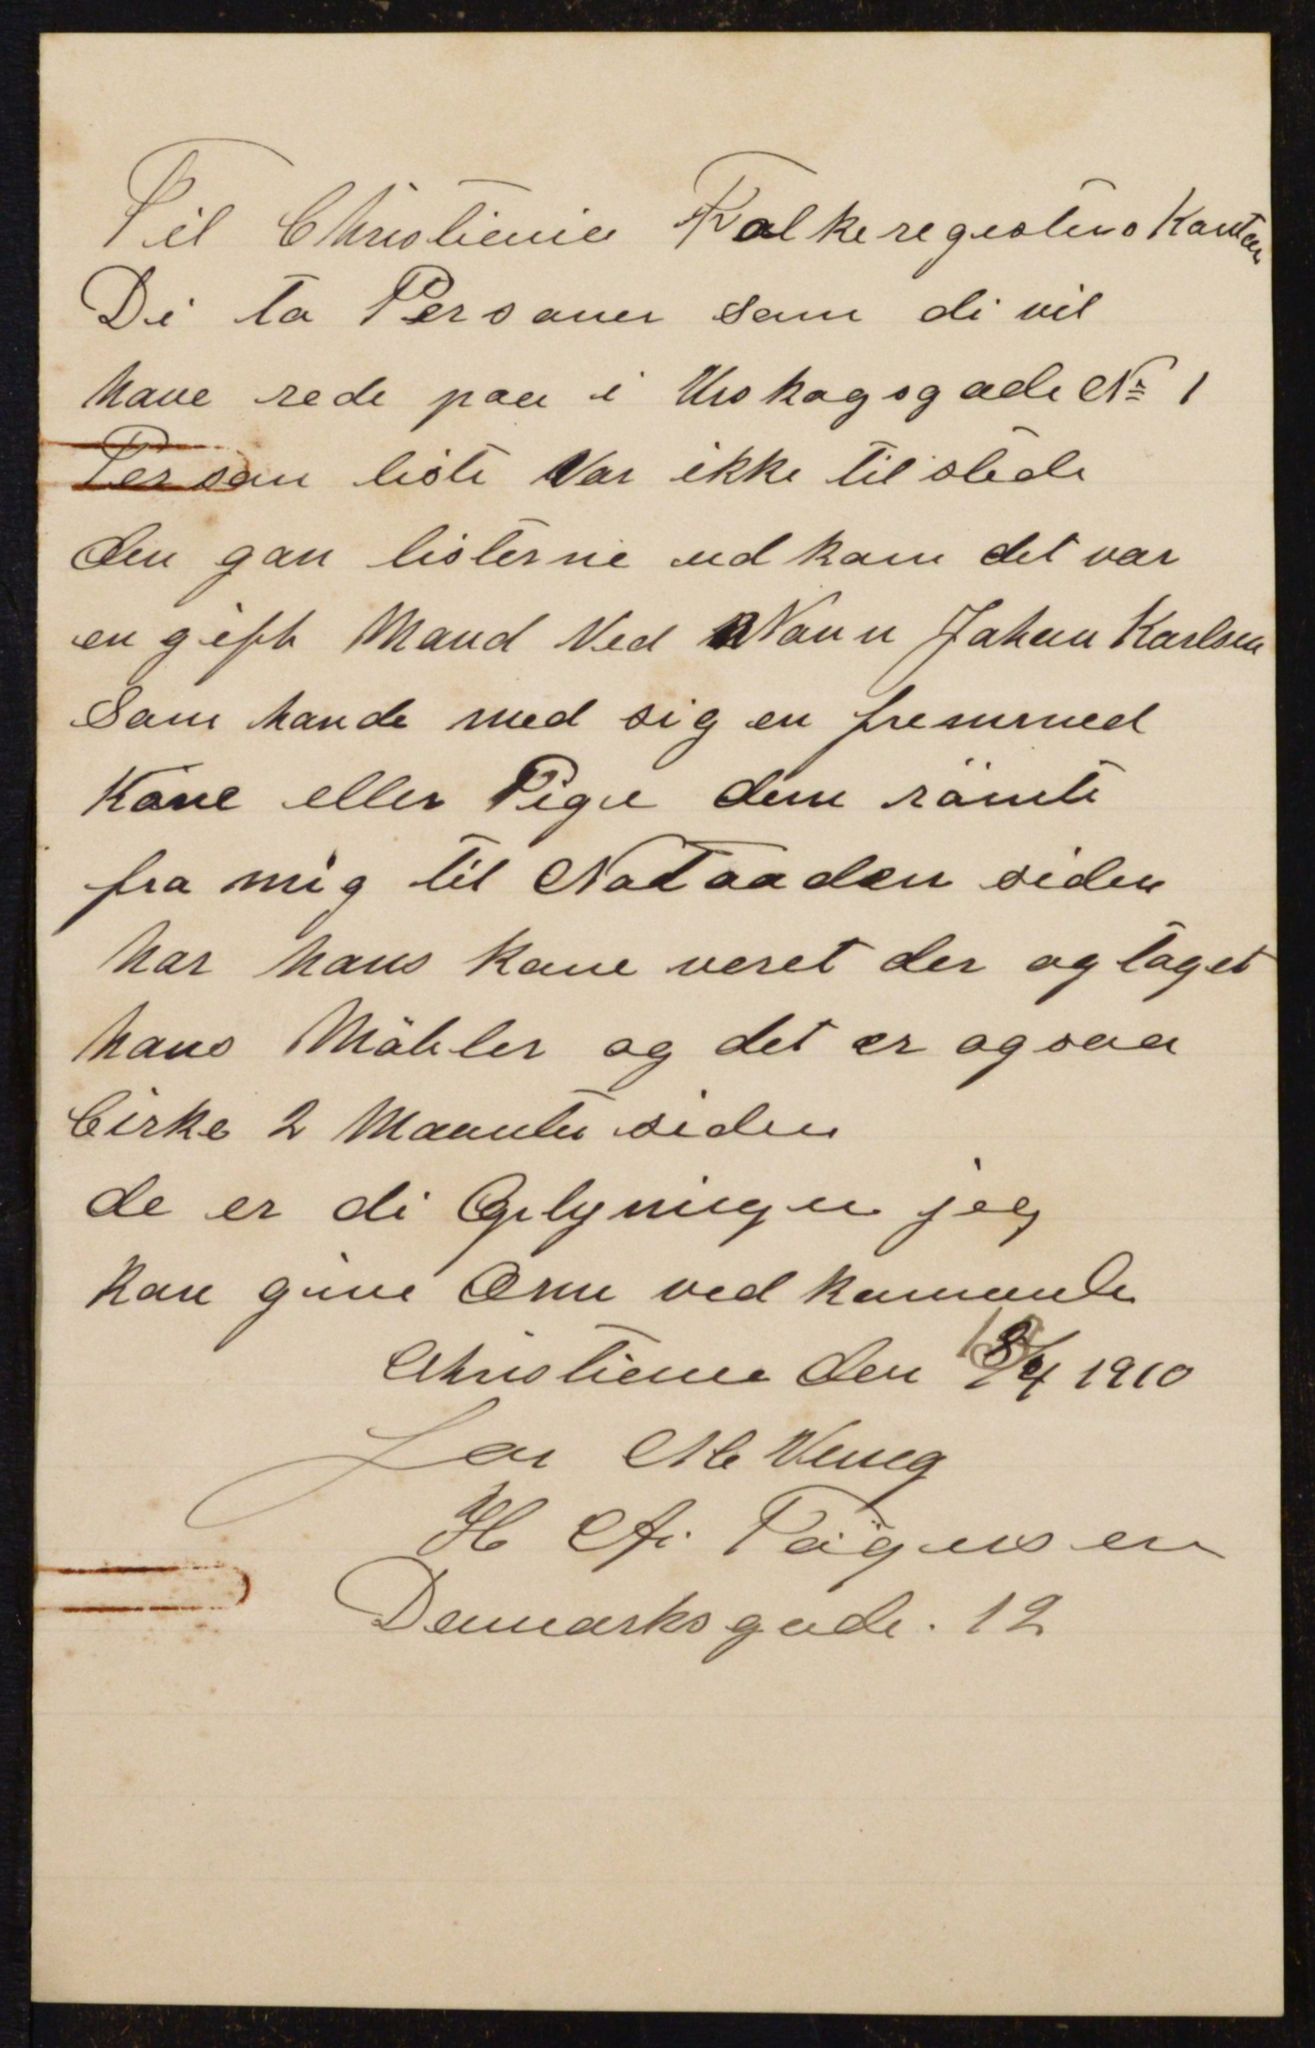 Til Christiania Folkeregisters Kontor
Di to Personer som di vil
have rede paa i Urskogsgade No 1
Person liste Var ikke til stede
den gan listerne ud kom det var
en gift Mand Ved Navn Johan Karlsen
Som havde med sig en fremmed
Kone eller Pige dem römte
fra mig til Notodden siden
har hans kone veret der og taget
hans Möbler og det er ogsaa
Cirke 2 Maaneter siden
de er di Oplyninger jeg
kan give Om ved kommende
Christiania den 18/4 1910
H
Danmarksgade. 12